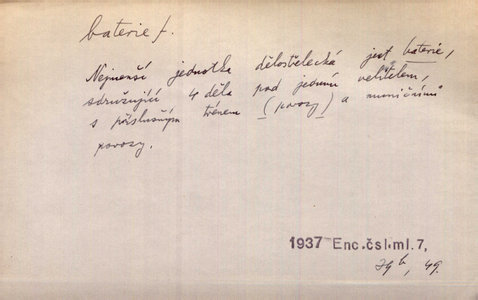 baterie f.
Nejmenší jednotka dělostřelecká jest baterie,
sdružující 4 děla pod jedním velitelem,
s příslušným trénem (povozy) a muničními
povozy.
1937 Enc.čsl.ml.7,
79b, 49.